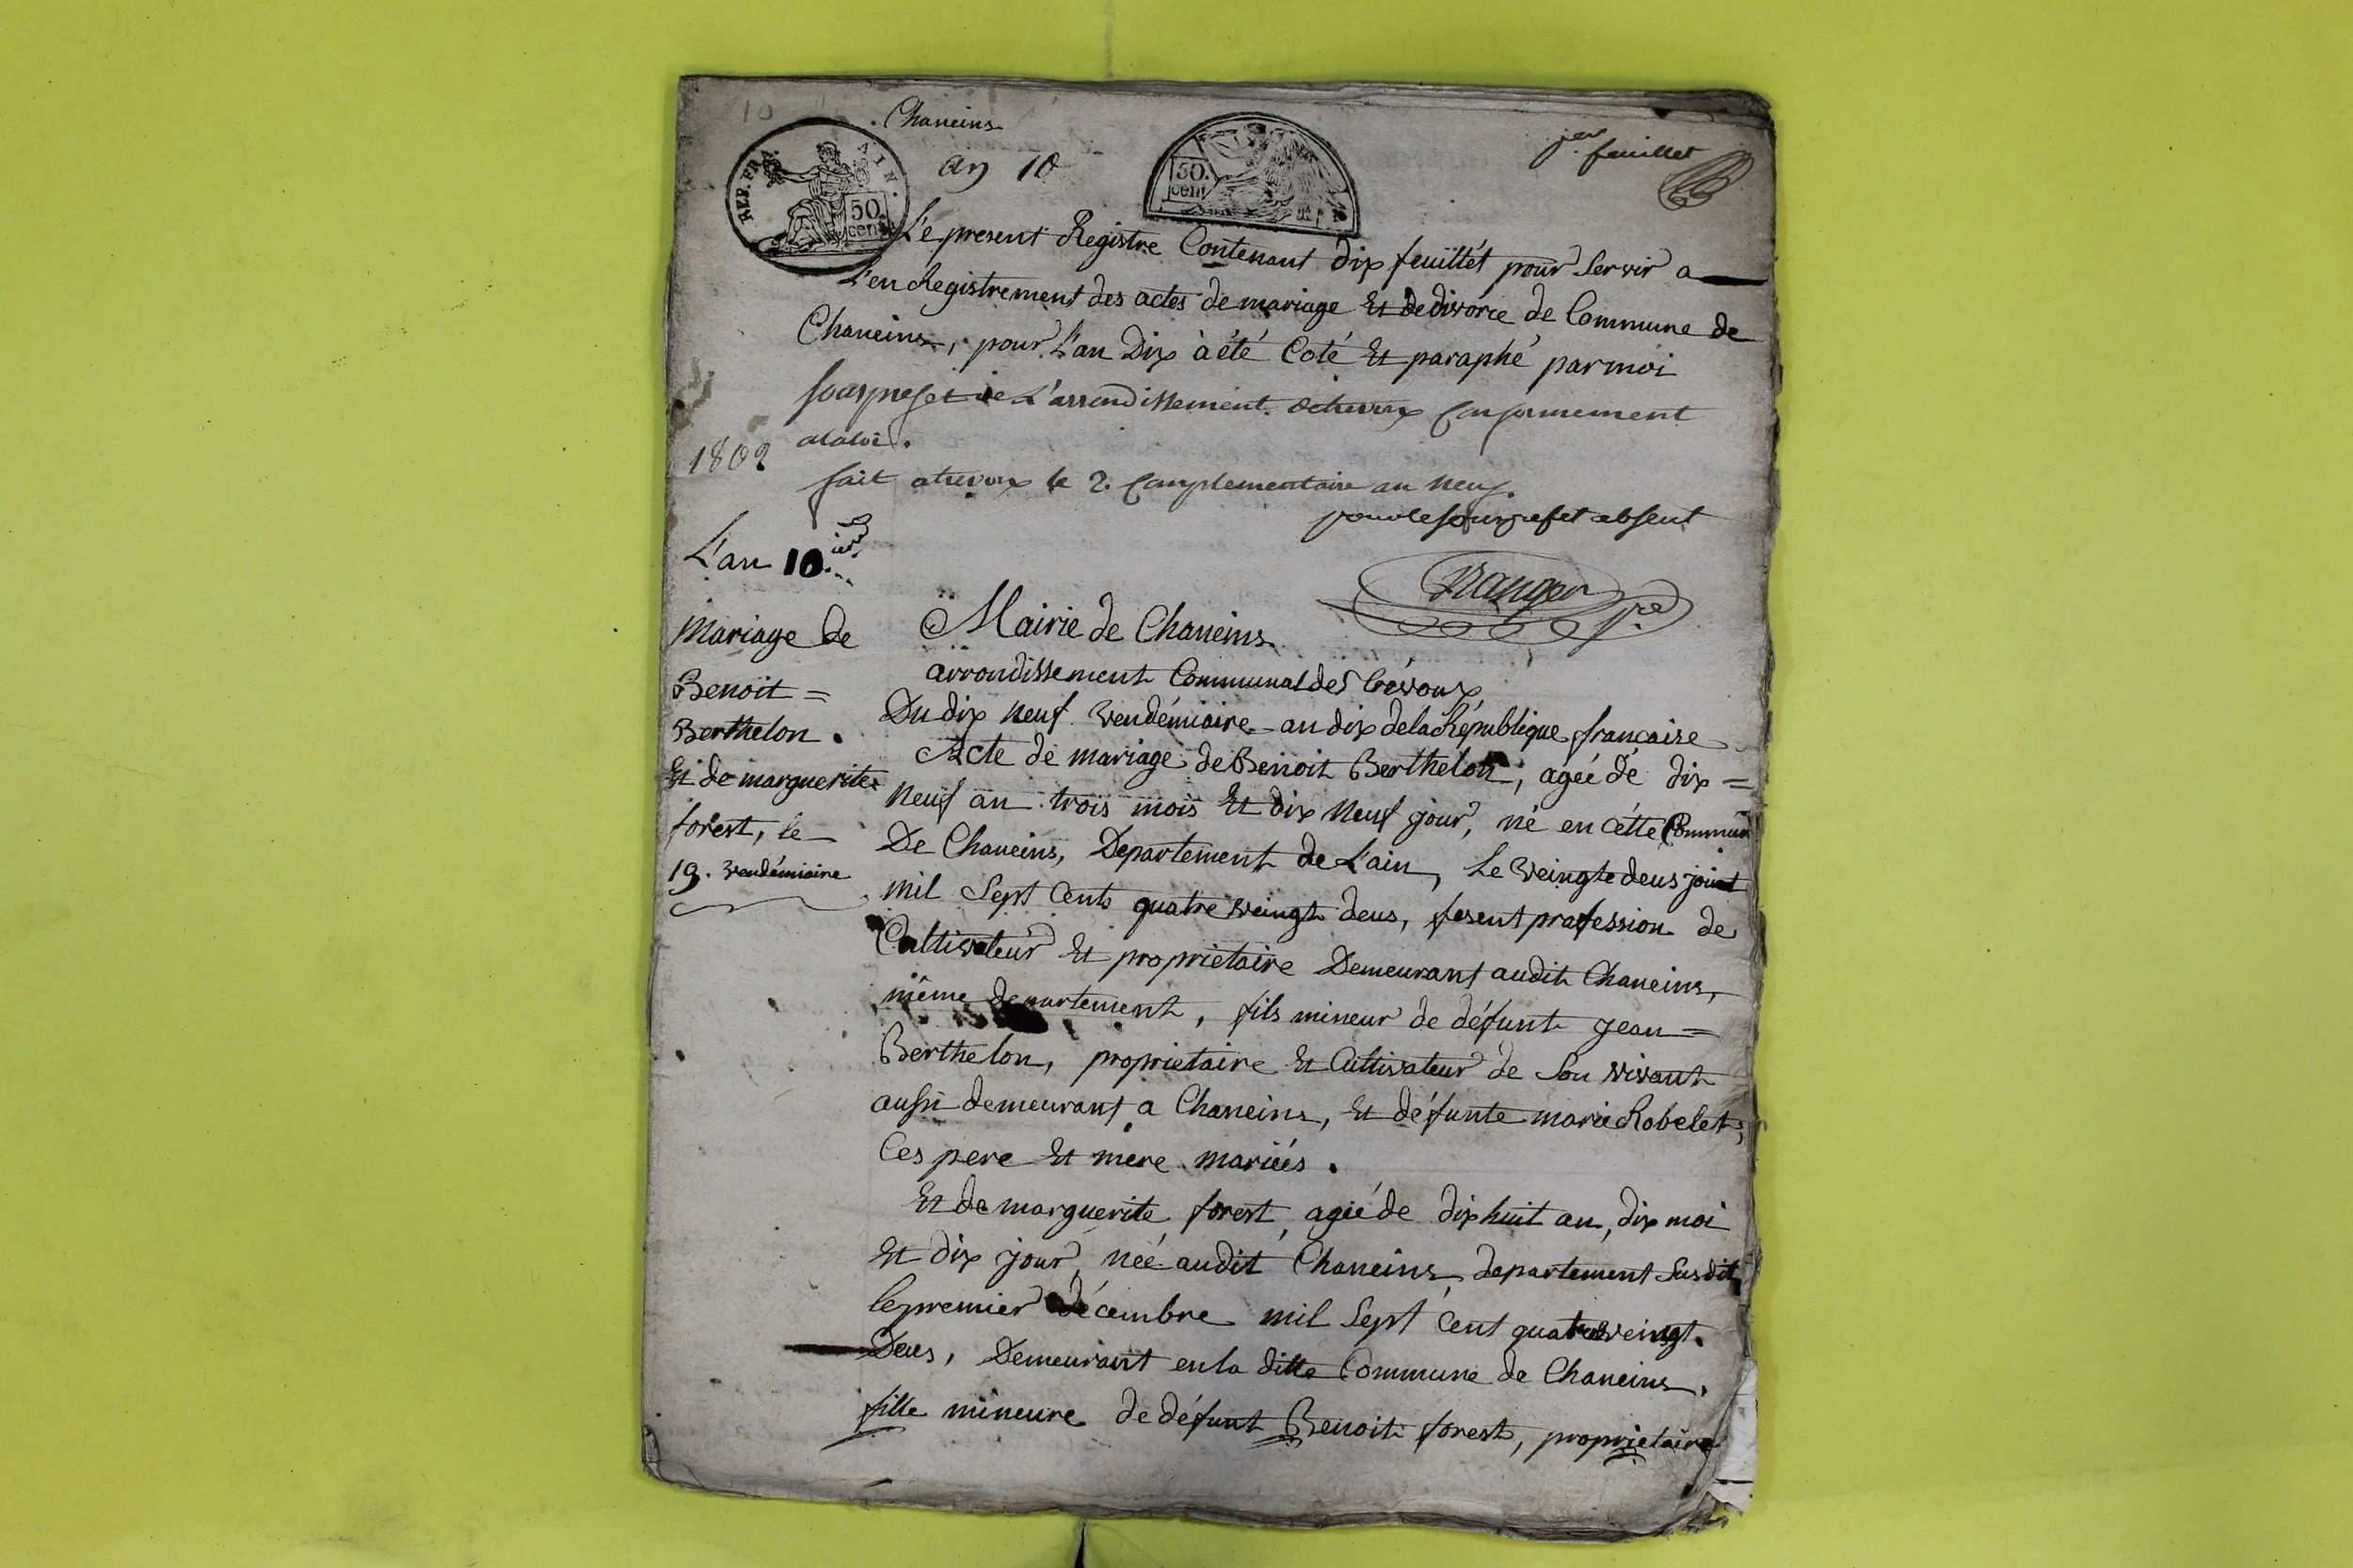 10
Chaneins
an 10
1er feuillet
REP. FRA. AIN.
50 cent
50. cent
Le present Registre Contenant dix feuillet pour Servir a
L'en Registrement des actes de mariage Et de divorce de Commune de
Chaneins, pour L'an Dix à été Coté Et paraphé par moi
souspréfet de L'arrondissement de trevoux conformement
alaloi.
fait a trevoux le 2. complementaire an neuf.
pour le sousprefet absent
1802
L'an 10.ième
Mariage de
Benoit =
Berthelon.
Et de marguerite
forest, le
19. vendémiaire
Mairie de Chaneins
arrondissement Communal de Trévoux
Du dix neuf vendémiaire an dix dela République française
Acte de mariage de Benoit Berthelon, ageé de dix =
neuf an trois mois Et dix neuf jour, né en cétte Commun
De Chaneins, Departement de L'ain, Le veingte deus
mil Sept Cents quatre veingt deus, fesent profession de
Cultivateur Et proprietaire Demeurant audit Chaneins,
même departement, fils mineur de défunt jean =
Berthelon, proprietaire Et Cultivateur de Son vivant
aussi demeurant a Chaneins, Et défunte marie Robelet,
Ces pere Et mere mariés.
Et de marguerite forest, ageé de dix huit an, dix moi
Et dix jour, neé audit Chaneins departement Susdit,
le premier décembre mil Sept Cent quatre veingt.
Deus, Demeurant en la ditte Commune de Chaneins,
fille mineure de défunt Benoit forest, proprietaire